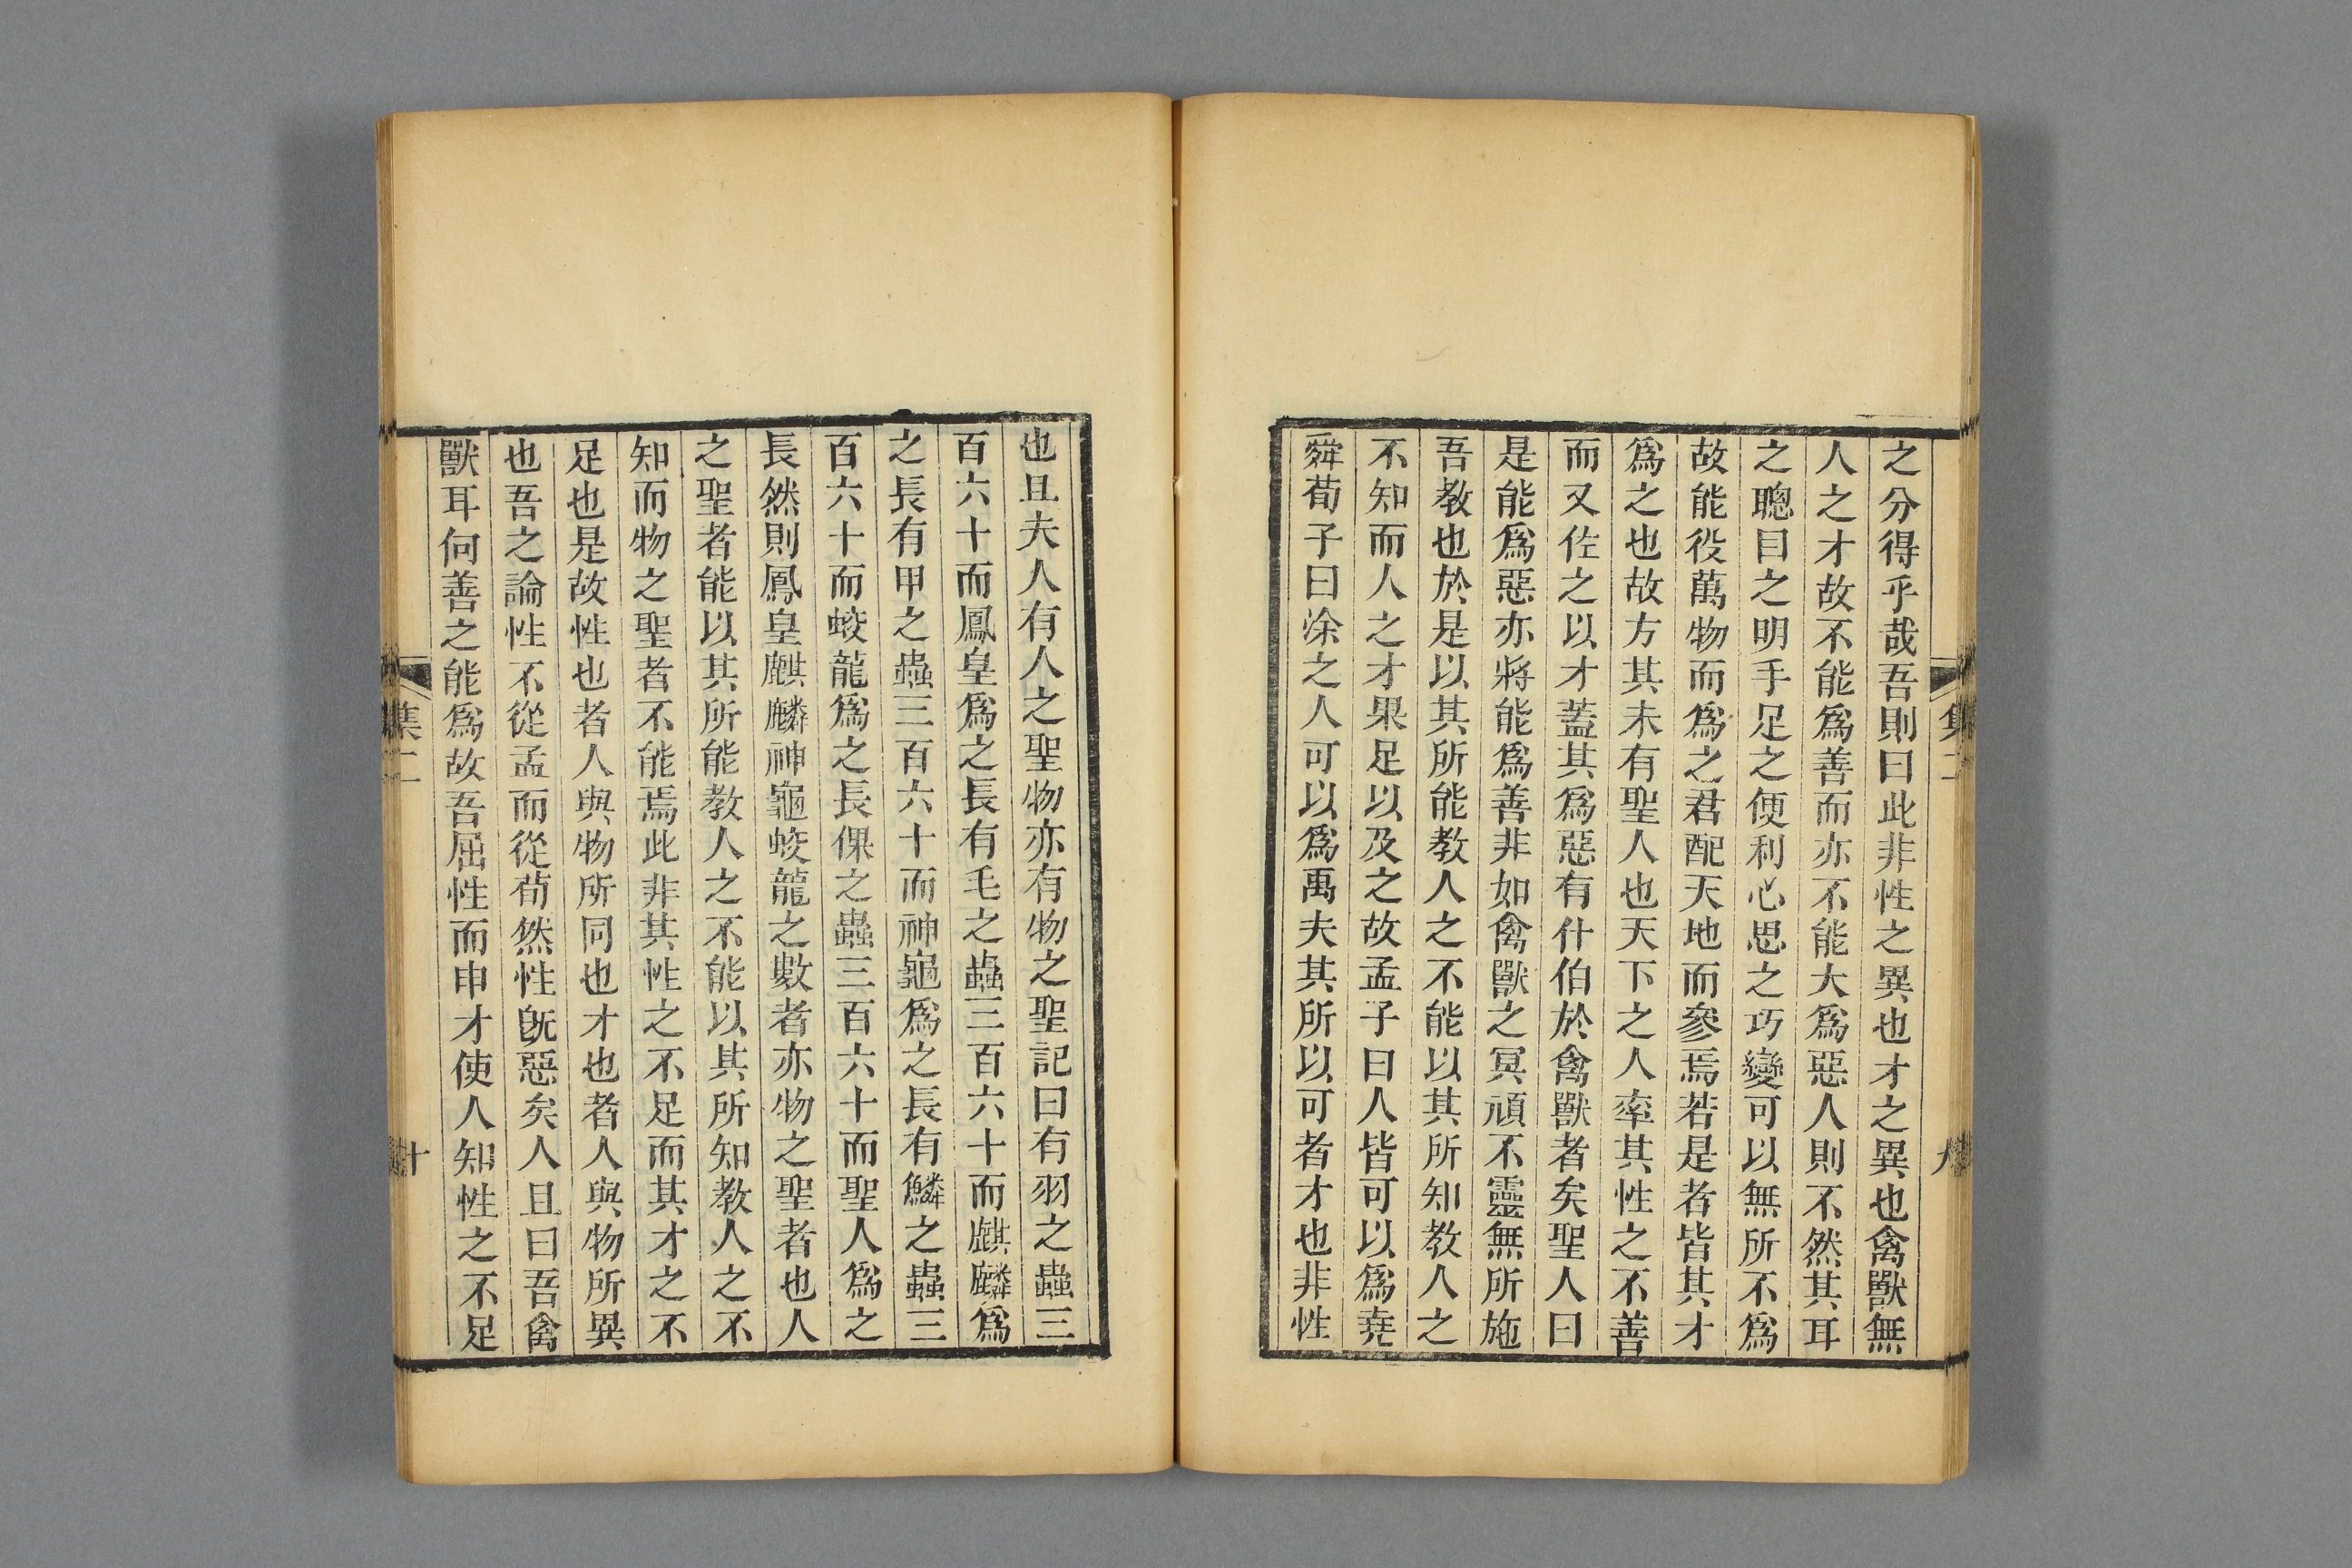 集二
九
之分得乎哉吾則曰此非性之異也才之異也禽獸無
人之才故不能爲善而亦不能大爲惡人則不然其耳
之聰目之明手足之便利心思之巧變可以無所不爲
故能役萬物而爲之君配天地而參焉若是者皆其才
爲之也故方其未有聖人也天下之人率其性之不善
而又佐之以才蓋其爲惡有什伯於禽獸者矣聖人曰
是能爲惡亦將能爲善非如禽獸之冥頑不靈無所施
吾教也於是以其所能教人之不能以其所知教人之
不知而人之才果足以及之故孟子曰人皆可以爲堯
舜荀子曰涂之人可以爲禹夫其所以可者才也非性
也且夫人有人之聖物亦有物之聖記曰有羽之蟲三
百六十而鳳皇爲之長有毛之蟲三百六十而麒麟爲
之長有甲之蟲三百六十而神龜爲之長有鱗之蟲三
百六十而蛟龍爲之長倮之蟲三百六十而聖人爲之
長然則鳳皇麒麟神龜蛟龍之數者亦物之聖者也人
之聖者能以其所能教人之不能以其所知教人之不
知而物之聖者不能焉此非其性之不足而其才之不
足也是故性也者人與物所同也才也者人與物所異
也吾之論性不從孟而從荀然性旣惡矣人且曰吾禽
獸耳何善之能爲故吾屈性而申才使人知性之不足
集二
十